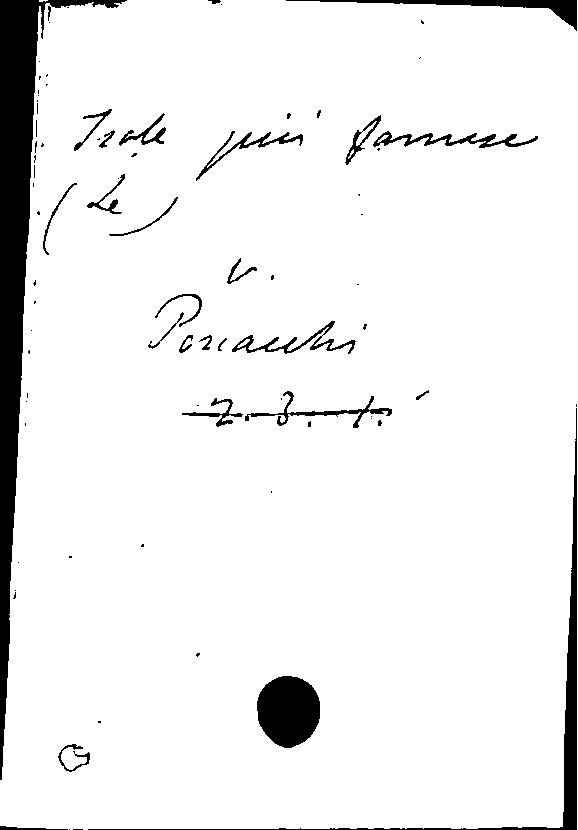 Isole più famose
(Le)
v.
Porcacchi
Z. 3. 1.